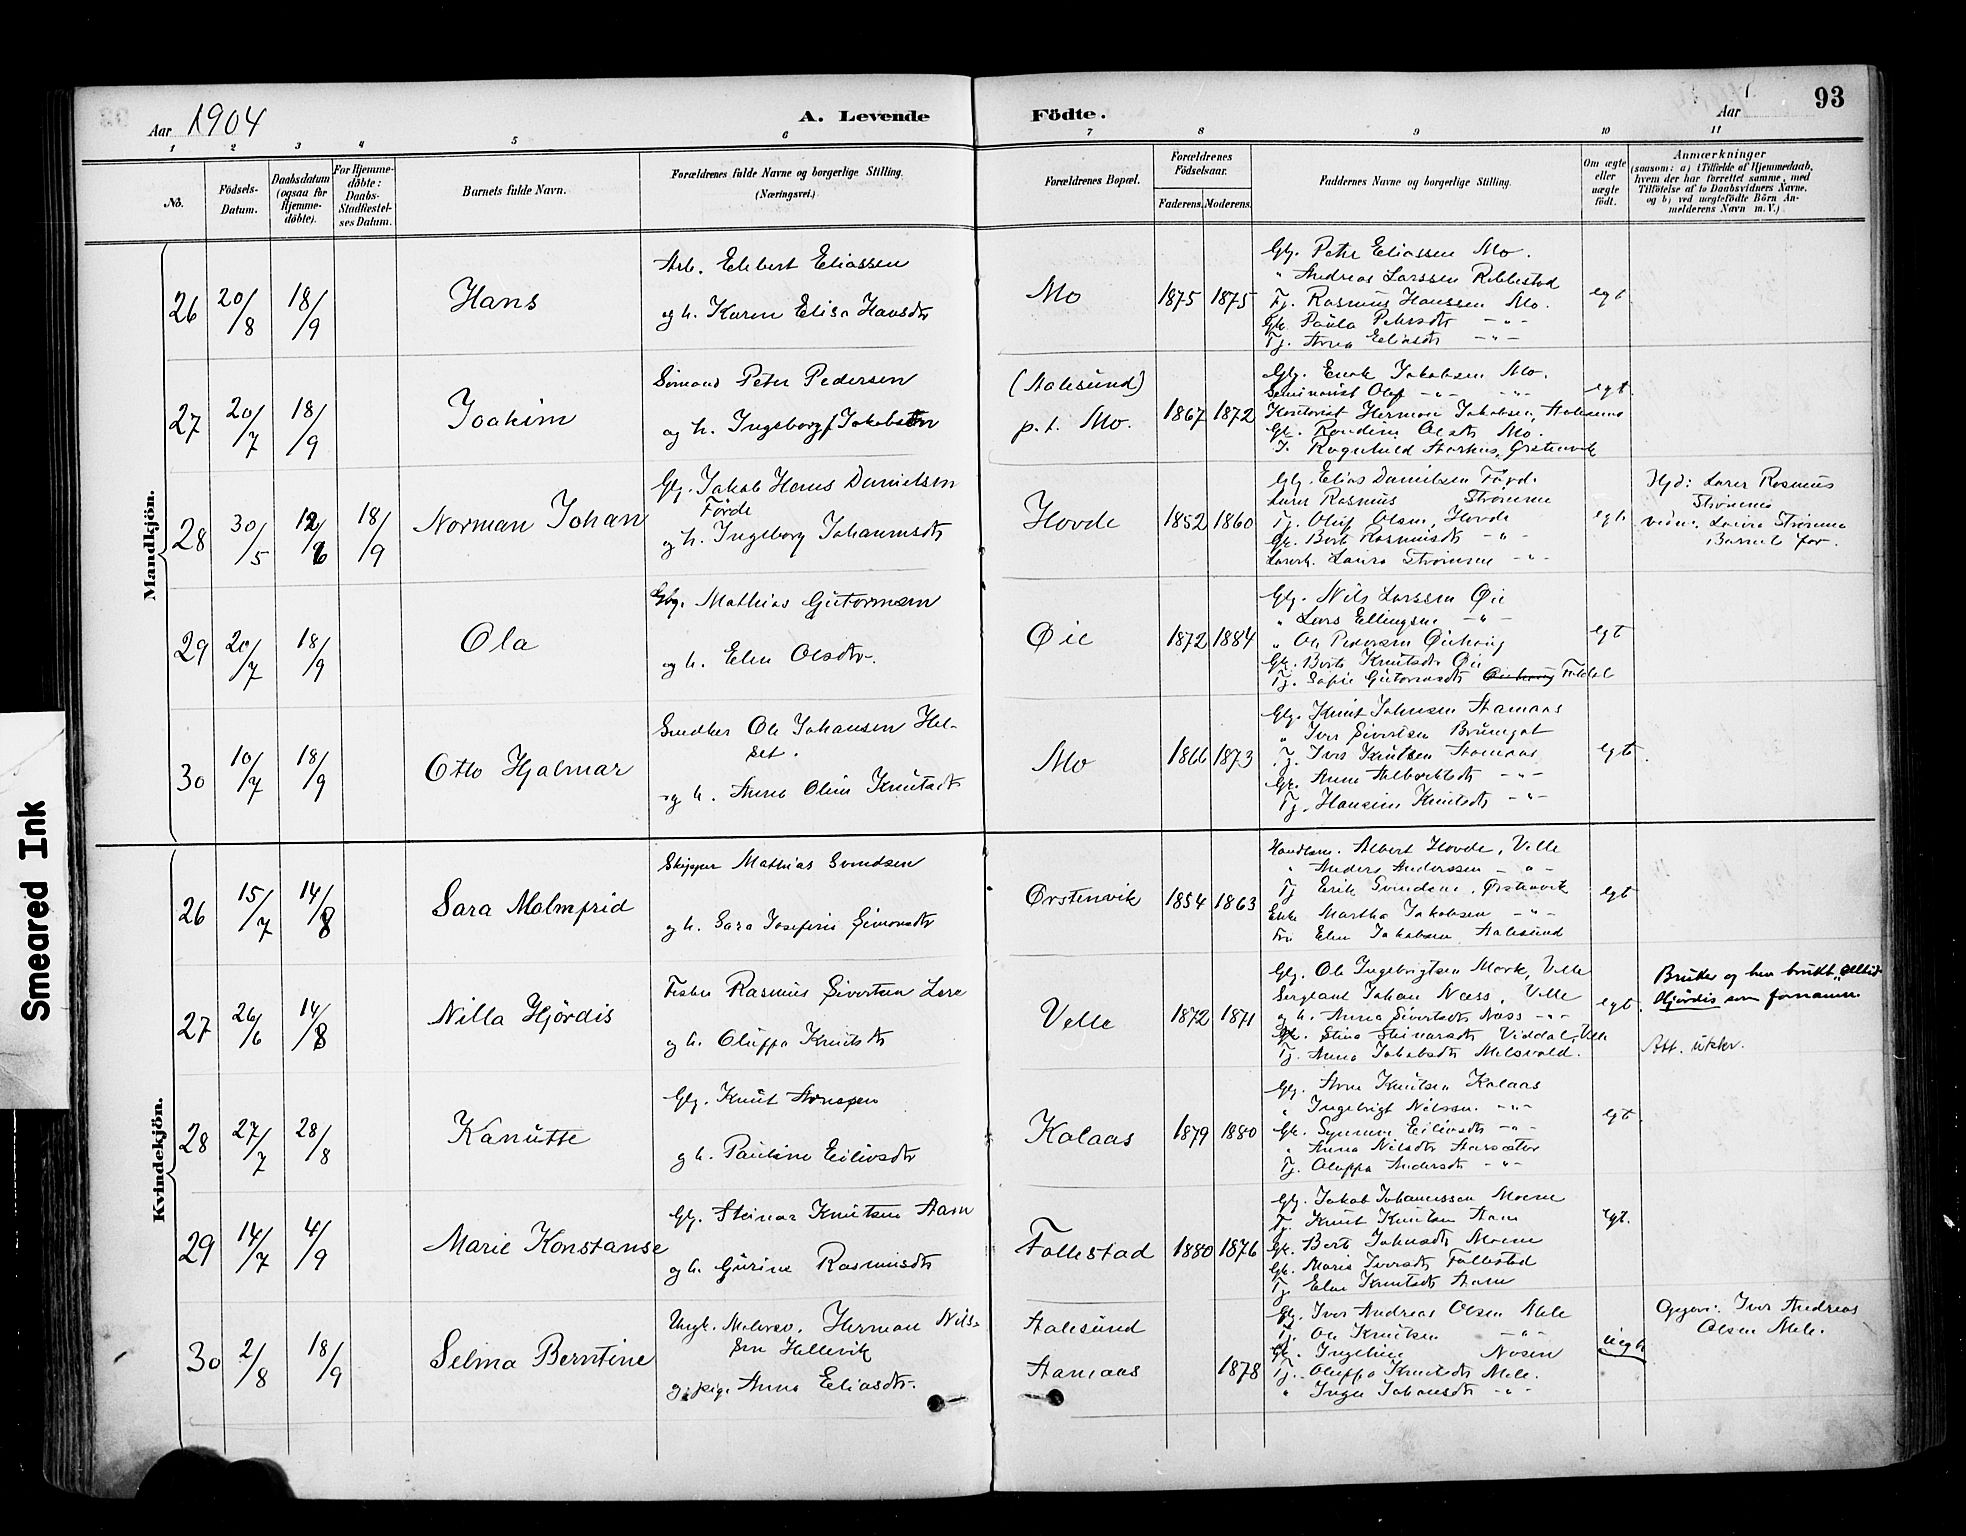 93
Aar 1904 A. Levende Födte. Aar
1 2 3 4 5 6 7 8 9 10 11
No.
Födsels-Datum.
Daabsdatum (ogsaa for Hjemme-döbte).
For Hjemme-döbte: Daabs-Stadfæstel-ses Datum.
Barnets fulde Navn.
Forældrenes fulde Navne og borgerlige Stilling. (Næringsvei.)
Forældrenes Bopæl.
Forældrenes Födselsaar.
Faderens. Moderens.
Faddernes Navne og borgerlige Stilling.
Om ægte eller uægte födt.
Anmærkninger
(saasom: a) i Tilfælde af Hjemmedaab, hvem der har forrettet samme, med Tilföielse af to Daabsvidners Navne. og b) ved uægtefödte Börn An-melderens Navn m. V.)
Mandkjön.
26 20/8 18/9 Hans
Arb. Elebert Eliassen
og h. Karen Elisa Hansdtr
Mo 1875 1875
Gbg. Peter Eliassen Mo.
" Andreas Larssen Ribbestad
Tj. Rasmus Hanssen Mo.
Gk. Paula Petersdtr -"-
Tj. Anna Eliasdtr -"-
egt
27 20/7 18/9 Joakim
Sömand Peter Pedersen
og h. Ingeborg J Jakobsen
(Aalesund)
p. t. Mo. 1867 1872
Gbg. Enok Jakobsen Mo.
Seminarist Olaf -"- -"-
Kontorist Herman Jakobsen, Aalesund
Gk. Rondine Olsdtr Mo.
egt.
28 30/5 12/6 18/9 Norman Johan
Gbg. Jakob Hans Danielsen
Förde
og h. Ingeborg Johannesdtr
Hovde 1852 1860
Gbg. Elias Danielsen Förde.
Lærer Rasmus Strømme
Tj. Oluf Olsen, Hovde
Gk. Berte Rasmusdtr -"-
Lærerk. Laura Strømme -"-
egt.
Hjd: Lærer Rasmus
Strömme
vidn. Laura Strömme
Barnets far.
29 20/7 18/9 Ola
Gbg. Mathias Guttormsen
og h. Elen Olsdtr.
Øie 1872 1884
Gbg. Nils Larssen Øie
" Lars Ellingsen -"-
" Ole Pedersen Øiehaug
Gk. Berte Knutsdtr Øie
Tj. Sofie Guttormsdtr Øiehaug Fildal
egt
30 10/7 18/9 Otto Hjalmar
Snedker Ole Johansen Hel-
set.
og h. Anne Oline Knutsdtr
Mo 1866 1873
Gbg. Knut Johnsen Aamaas
" Iver Sivertsen
Tj. Ivar Knutsen Aamaas
Gk. Anne -"-
Tj. Hansine Knutsdtr -"-
egt.
Kvindekjön.
26 15/7 14/8 Sara Malmfrid
Skipper Mathias Svendsen
og h. Sara Josefine Simonsdtr
Ørstenvik 1854 1863
Handlsm. Albert Hovde, Velle
" Anders Anderssen -"-
Tj Erik Svendsen, Ørstenvik
Enke Martha Jakobsen -"-
Fru Elen Jakobsen Aalesund
egt
27 26/6 14/8 Nilla Hjördis
Fisker Rasmus Sivertsen
og h. Oluffa Knutsdtr
Velle 1872 1871
Gbg. Ole Ingebrigtsen Mork, Velle
Sergeant Johan Næss, Velle
og h. Anna Sivertsdtr Næss -"-
Gk. Stina Steinarsdtr Viddal, Velle
Tj. Anna Jakobsdtr Melsvold.
egt.
Bruker og har brukt "alltid"
Hjördis som fornamn.
Att. utskr.
28 27/7 28/8 Kanutte
Gbg. Knut Arnesen
og h. Pauline Eilivsdtr
Kolaas 1879 1880
Gbg. Arne Knutsen Kolaas
" Ingebrigt Nilssen -"-
Gk. Synnøve Eilivsdtr -"-
" Anna Nilsdtr Aarsæter
Tj. Oluffa Andersdtr -"-
egt.
29 14/7 4/9 Marie Konstanse
Gbg. Steinar Knutsen Aam
og h. Gurine Rasmusdtr
Follestad 1880 1876
Gbg. Jakob Johannessen Moene
Tj. Knut Knutsen Aam
Gk. Berte Johnsdtr Moene
Gk. Marie Iversdtr Follestad
Tj. Elen Knutsdtr Aam
egt.
30 2/8 18/9 Selma Berntine
Ungk. Malersv. Herman Nils-
sen Hellevik
og pige Anna Eliasdtr.
Aalesund
Aamaas 1878
Gbg. Iver Andreas Olsen Mele
Tj. Ole Knutsen -"-
Gk. Ingeline Nosen
Tj. Oluffa Knutsdtr Mele.
" Inga Johansdtr -"-
uegte
Opgaver: Iver Andreas
Olsen Mele.
Smeared Ink